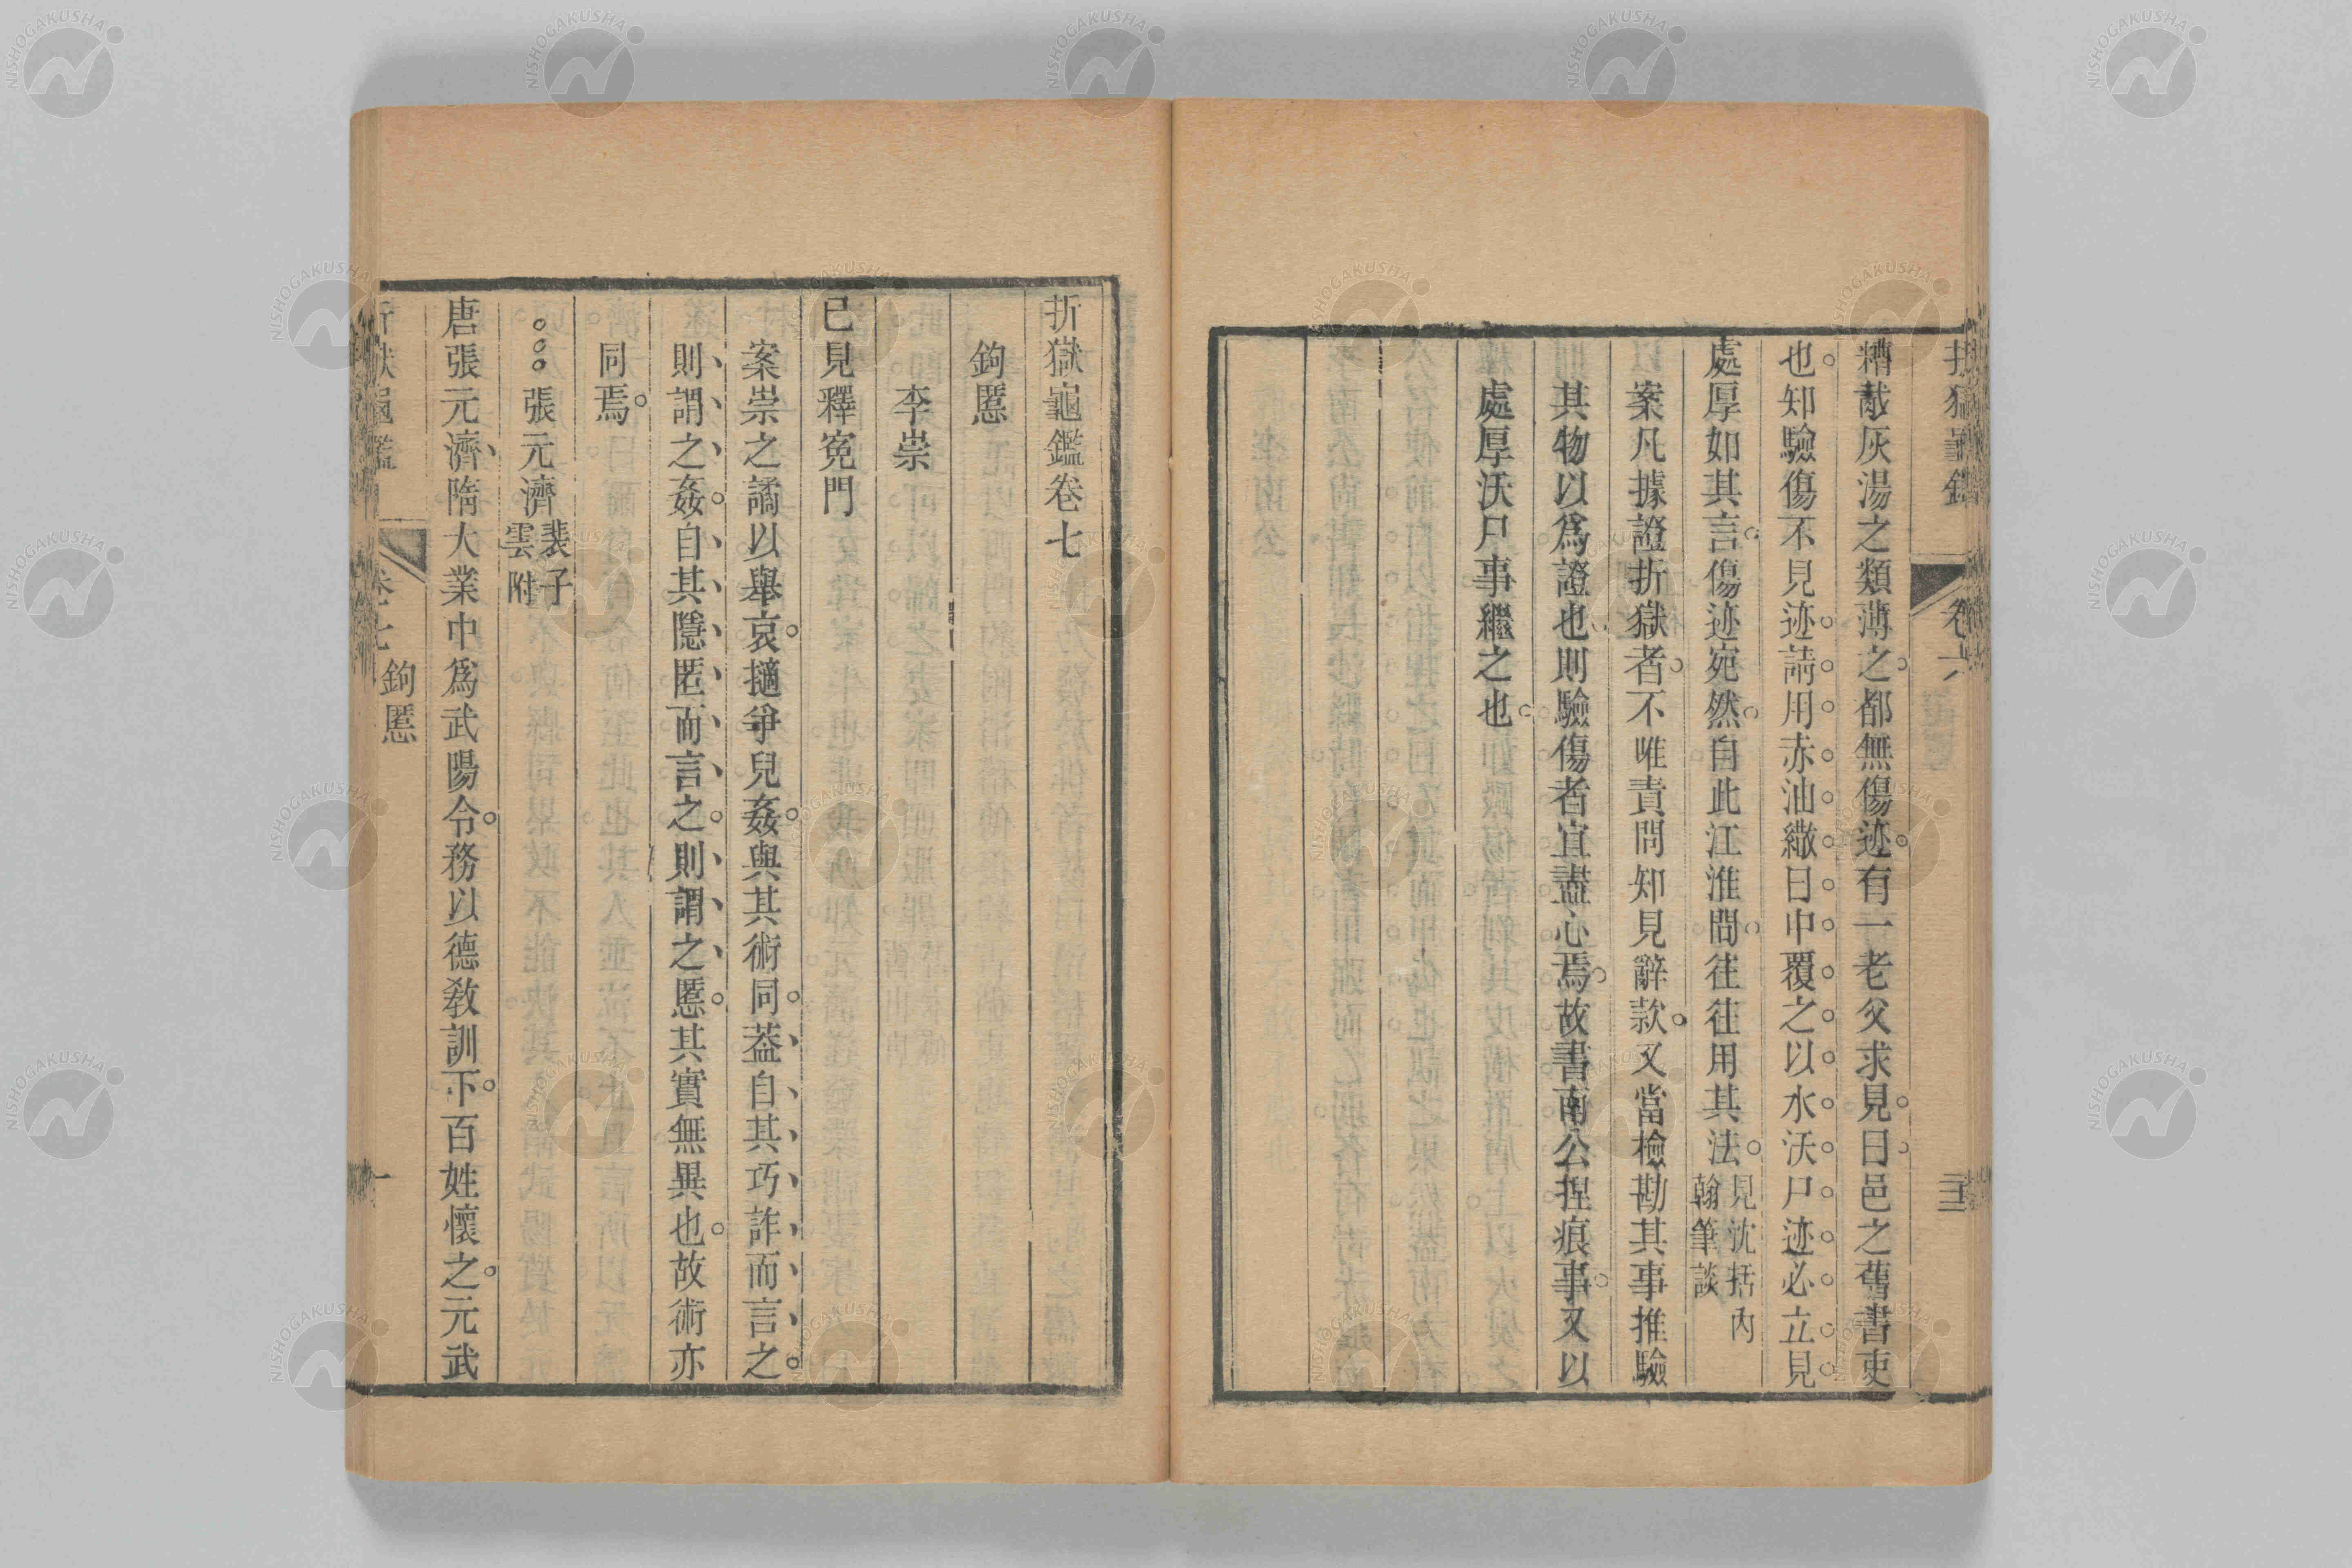 糟胾灰湯之類薄之都無傷迹有一老父求見曰邑之舊書吏
也知驗傷不見迹請用赤油繖日中覆之以水沃尸迹必立見
處厚如其言傷迹宛然自此江淮間往往用其法見沈括內
翰筆談
案凡據證折獄者不唯責問知見辭款又當檢勘其事推驗
其物以爲證也則驗傷者宜盡心焉故書南公揑痕事又以
處厚沃尸事繼之也
卷六
折獄龜鑑卷七
鉤慝
李崇
已見釋寃門
案崇之譎以舉哀擿爭兒姦與其術同葢自其巧詐而言之
則謂之姦自其隱匿而言之則謂之慝其實無異也故術亦
同焉
張元濟裴子
雲附
唐張元濟隋大業中爲武陽令務以德敎訓下百姓懷之元武
卷七 鉤慝
一
NISHOGAKUSHA